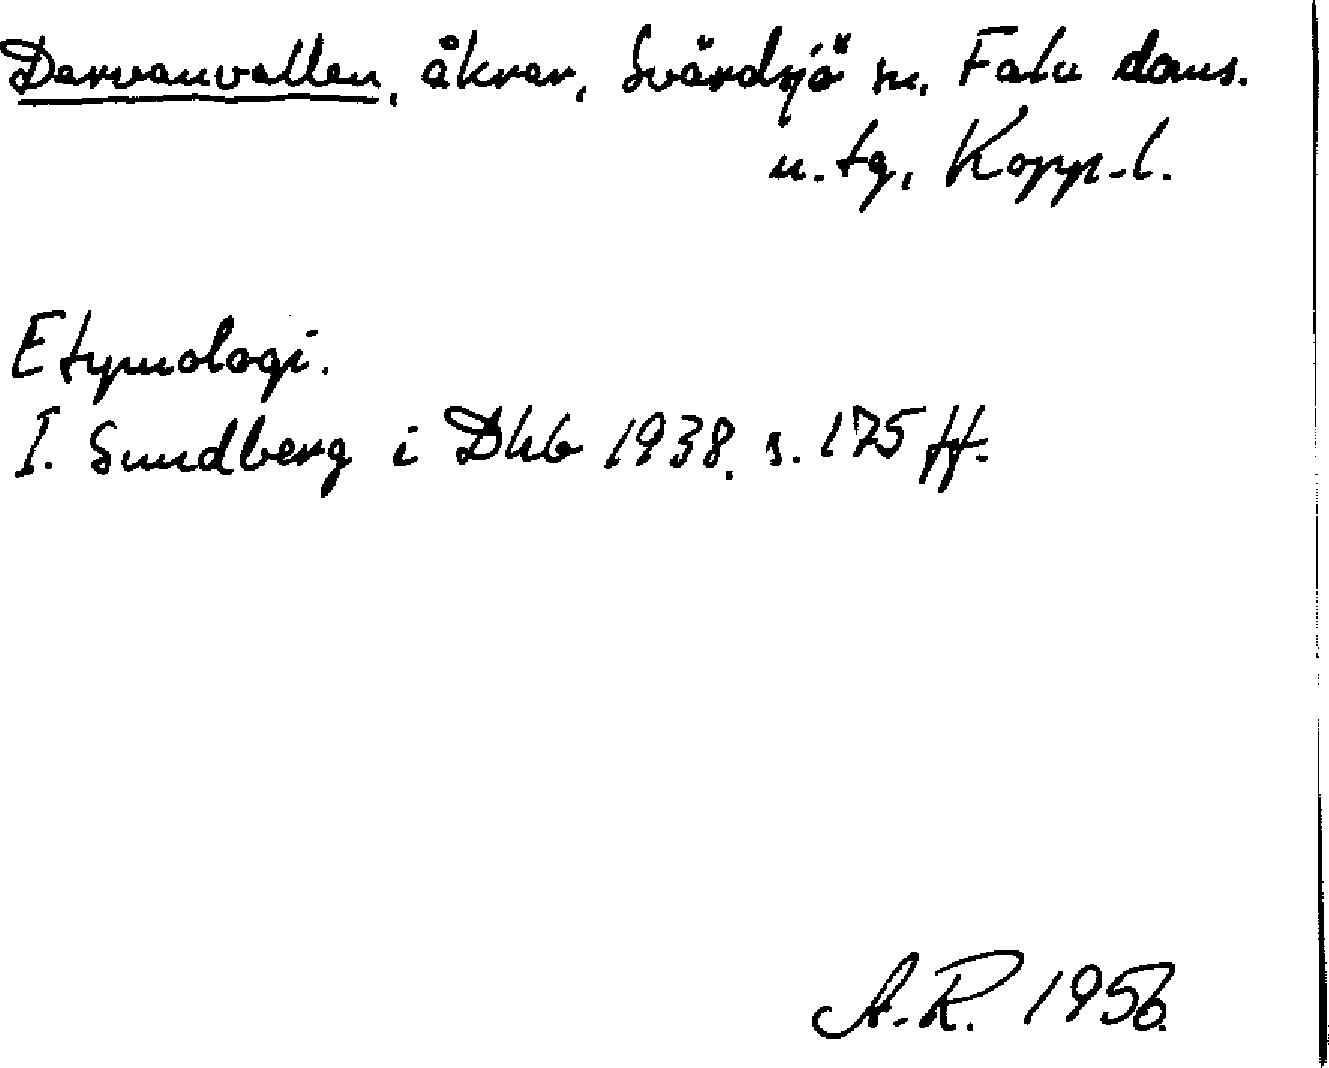 Darvanvallen, åkrar, Svärdsjö sn, Falu doms.
n. tg, Kopp-l.
Etymologi.
I. Sundberg i Dhb 1938. s. 175 ff.
A.R. 1956.